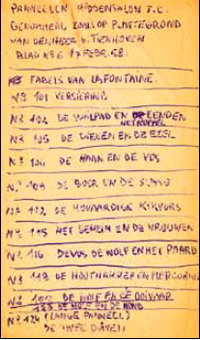 PANNEELEN MIDDENSALON T.C.
GENUMMERD ZOALS OP PLATTEGROND
VAN DEN HEER
BLAD No 6 17 FEBR. 58.
FABELS VAN LAFONTAINE.
No 101
No 102 DE SCHILPAD EN DE EENDEN
No 105 DE EN DE EZEL
No 106 DE HAAN EN DE VOS
No 109 DE BOER EN DE SLANG
No 112 DE HOVAARDIGE KIKVORS
No 115 HET GEHEIM EN DE VROUWEN
No 116 DE VOS DE WOLF EN HET PAARD
No 119 DE HOUTHAKKER EN MERCURIUS
No DE WOLF EN DE OOIVAAR
123 DE WOLF EN DE HOND
No 124 (LANGE PANNEEL)
DE TWEE DUIVEN